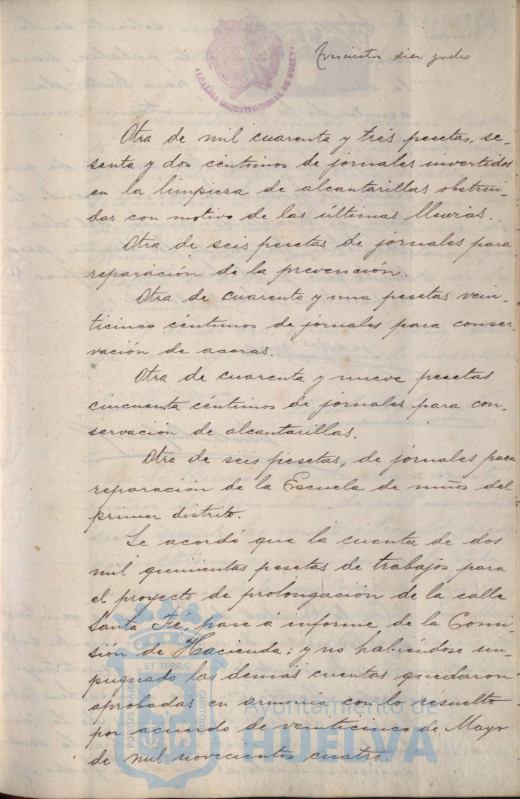 ALCALDIA CONSTITUCIONAL DE HUELVA
Otra de mil cuarenta y tres pesetas, se-
senta y dos céntimos de jornales invertidos
en la limpiesa de alcantarillas obstrui-
das con motivo de las últimas lluvias.
Otra de seis pesetas de jornales para
reparación de la prevención.
Otra de cuarenta y una pesetas vein-
ticinco céntimos de jornales para conser-
vación de aceras.
Otra de cuarenta y nueve pesetas
cincuenta céntimos de jornales para con-
servación de alcantarillas.
Otra de seis pesetas, de jornales para
reparación de la Escuela de niños del
primer distrito.
Se acordó que la cuenta de dos
mil quinientas pesetas de trabajos para
el proyecto de prolongación de la calle
Santa Fé, pase á informe de la Comi-
sión de Hacienda; y no habiéndose im-
pugnado las demás cuentas quedaron
aprobadas en armonía con lo resuelto
por acuerdo de veinticinco de Mayo
de mil novecientos cuatro.
ET TERRAE
PORTUS MARIS
CUSTODIA
Ayuntamiento de
HUELVA